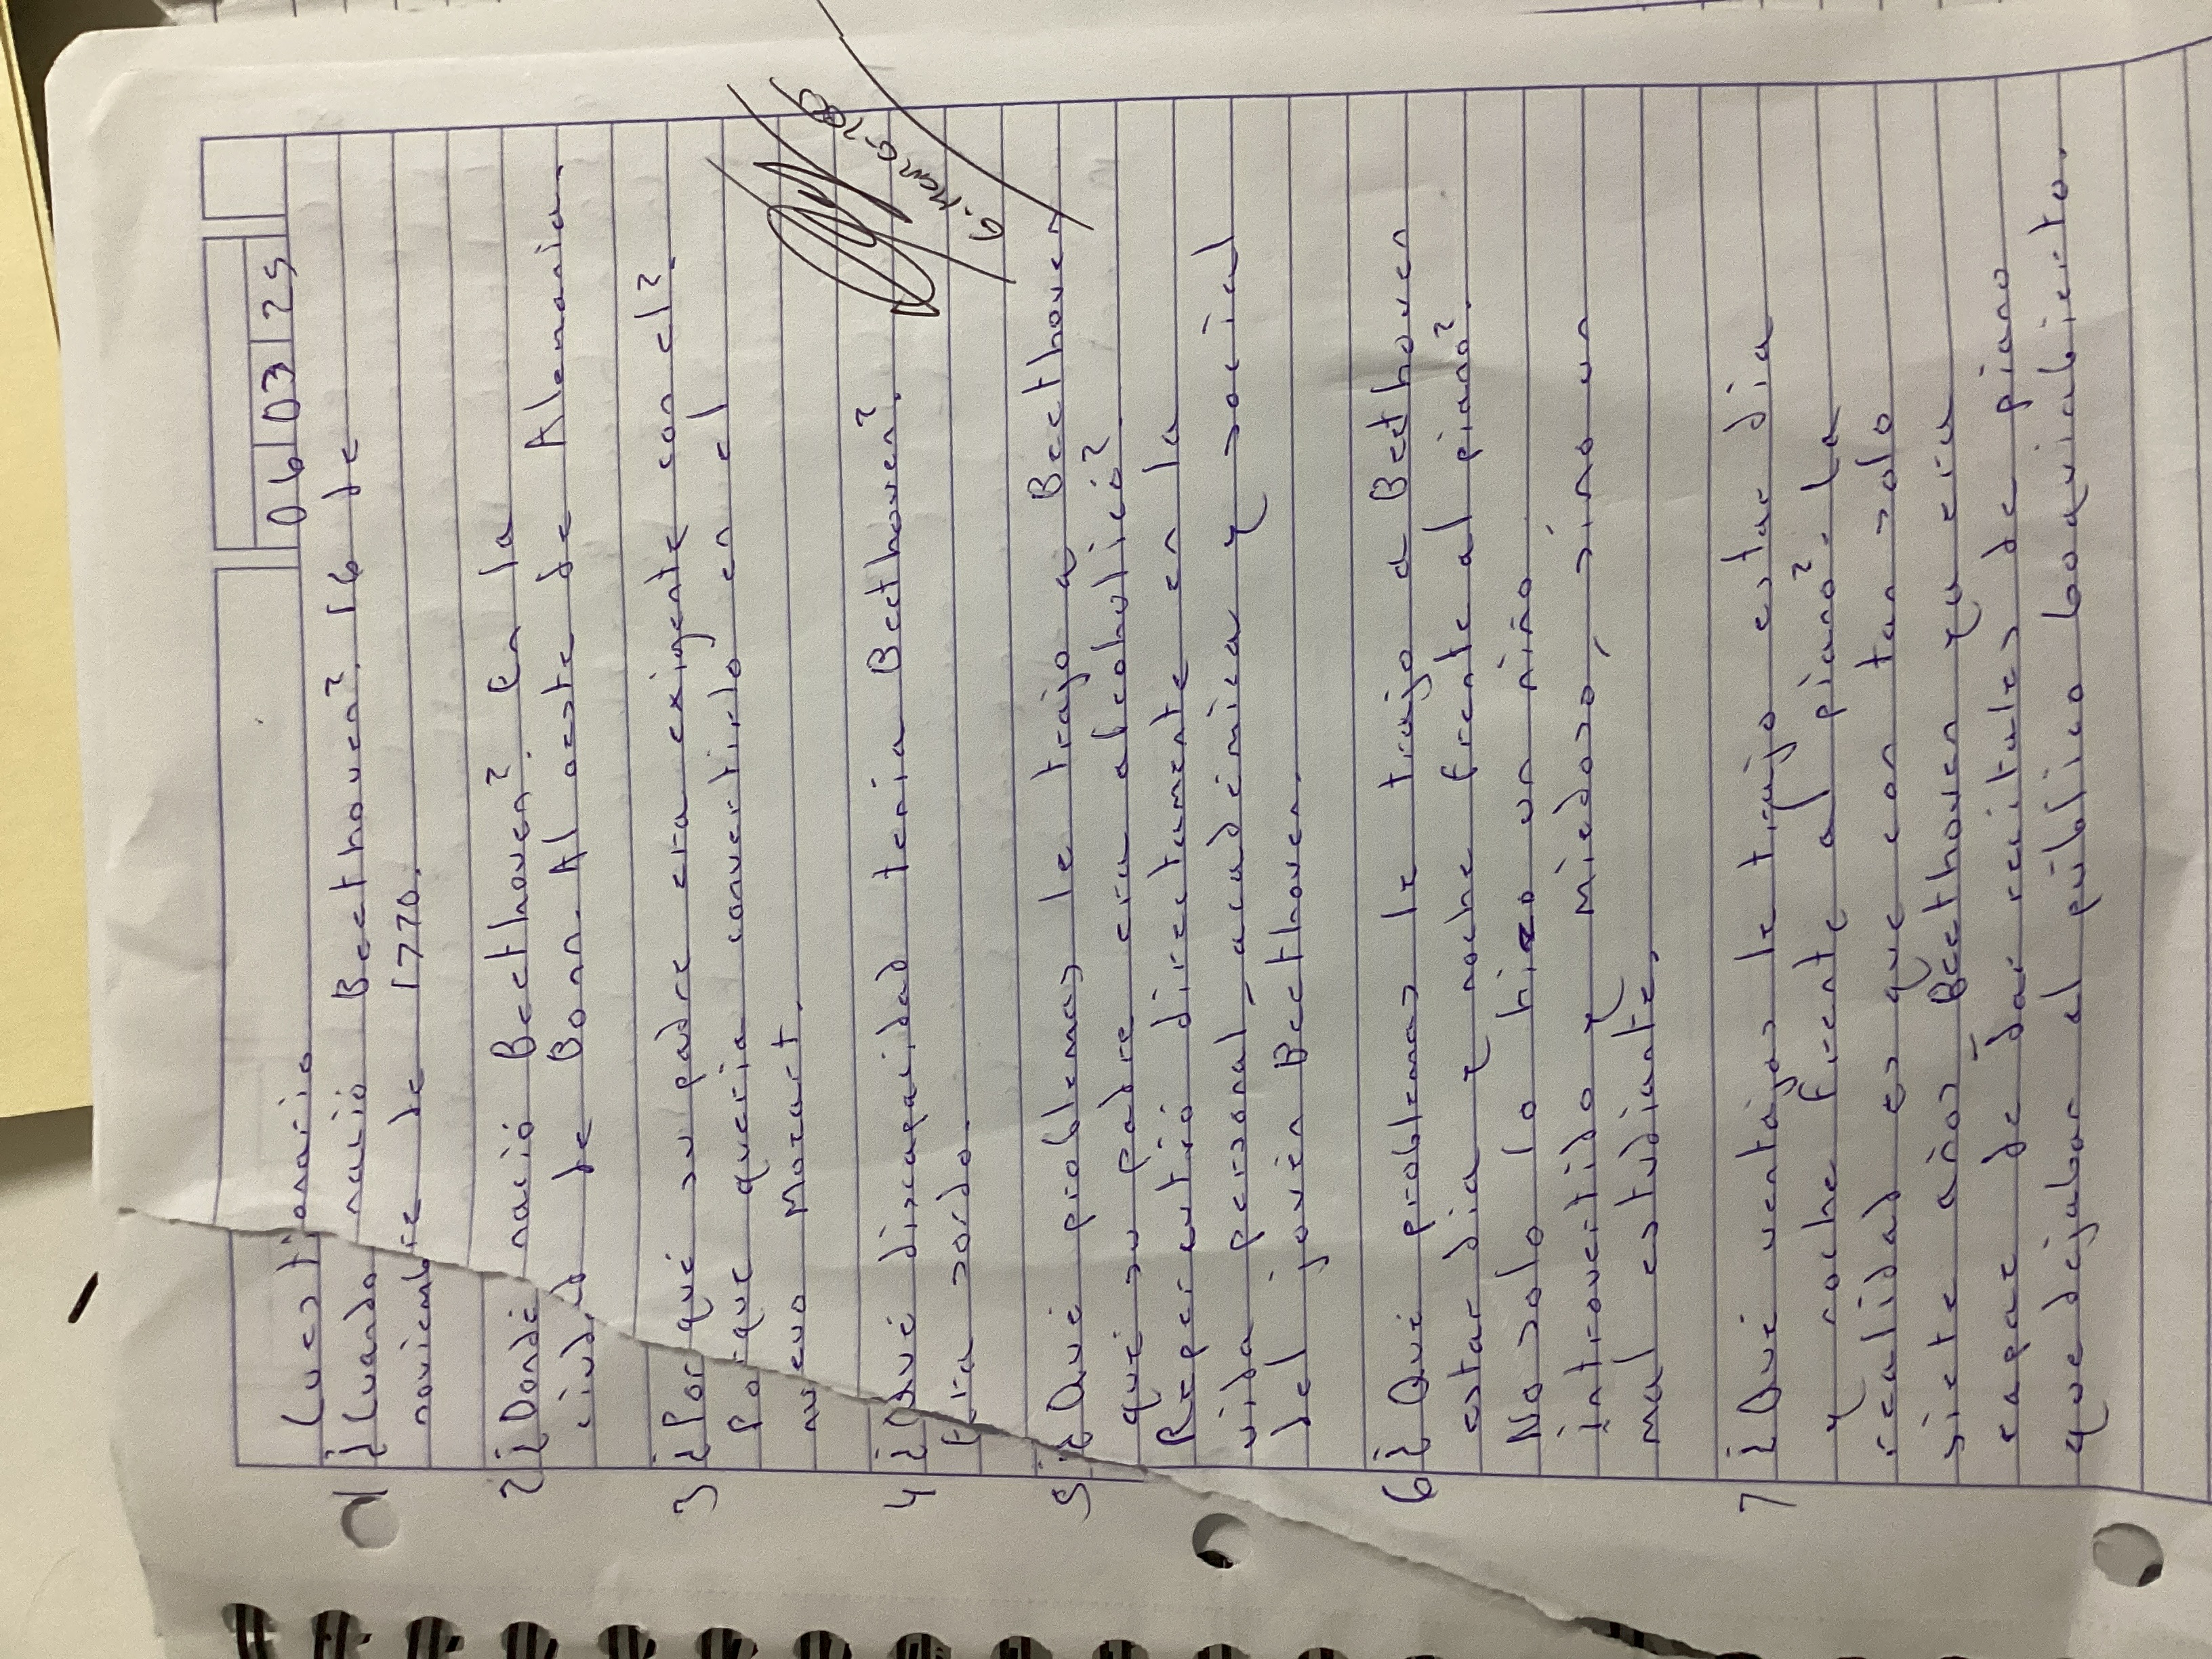 06 03 25
Cuestionario
1 ¿Cuando nació Beethoven?. 16 de
noviembre de 1770.
2 ¿Dondé nació Beethoven?. En la
ciudad de Bonn. Al oeste de Alemania.
3 ¿Por qué su padre era exigente con el?.
Porque quería convertirlo en el
nuevo Mozart.
4 ¿Qué discapacidad tenia Beethoven?.
Era sordo.
5 ¿Qué problemas le trajo a Beethoven
que su padre era alcohólico?.
Repercutió directamente en la
vida personal, académica y social
del joven Beethoven.
6 ¿Qué problemas le trajo a Beethoven
estar dia y noche frente al piano?.
No solo lo hizo un niño
introvertido y miedoso, sino un
mal estudiante.
7 ¿Qué ventajas le trajo estar dia
y noche frente al piano?. La
realidad es que con tan solo
siete años Beethoven ya era
capaz de dar recitales de piano
que dejaban al público boquiabierto.